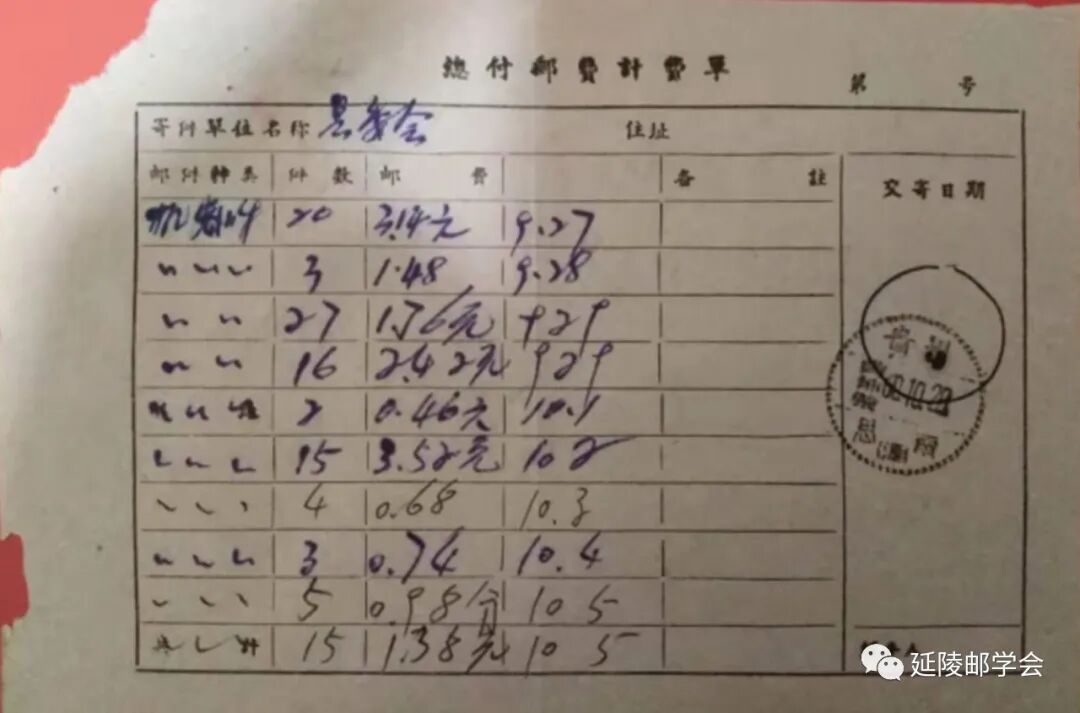 總付郵費計費單
第 号
寄付單位名称 县委会 住址
郵付种类 件数 郵费 备註 交寄日期
20 3.14元 9.27
〃 〃 〃 3 1.48 9.28
〃 〃 27 1.76元 9 29
〃 〃 16 2.42元 9 29
〃 〃 2 0.46元 10.1
〃 〃 〃 15 3.52元 10 2
〃 〃 〃 4 0.68 10.3
〃 〃 〃 3 0.74 10.4
〃 〃 〃 5 0.98分 10 5
15 1.38元 10 5
貴州
10.20
思
延陵邮学会